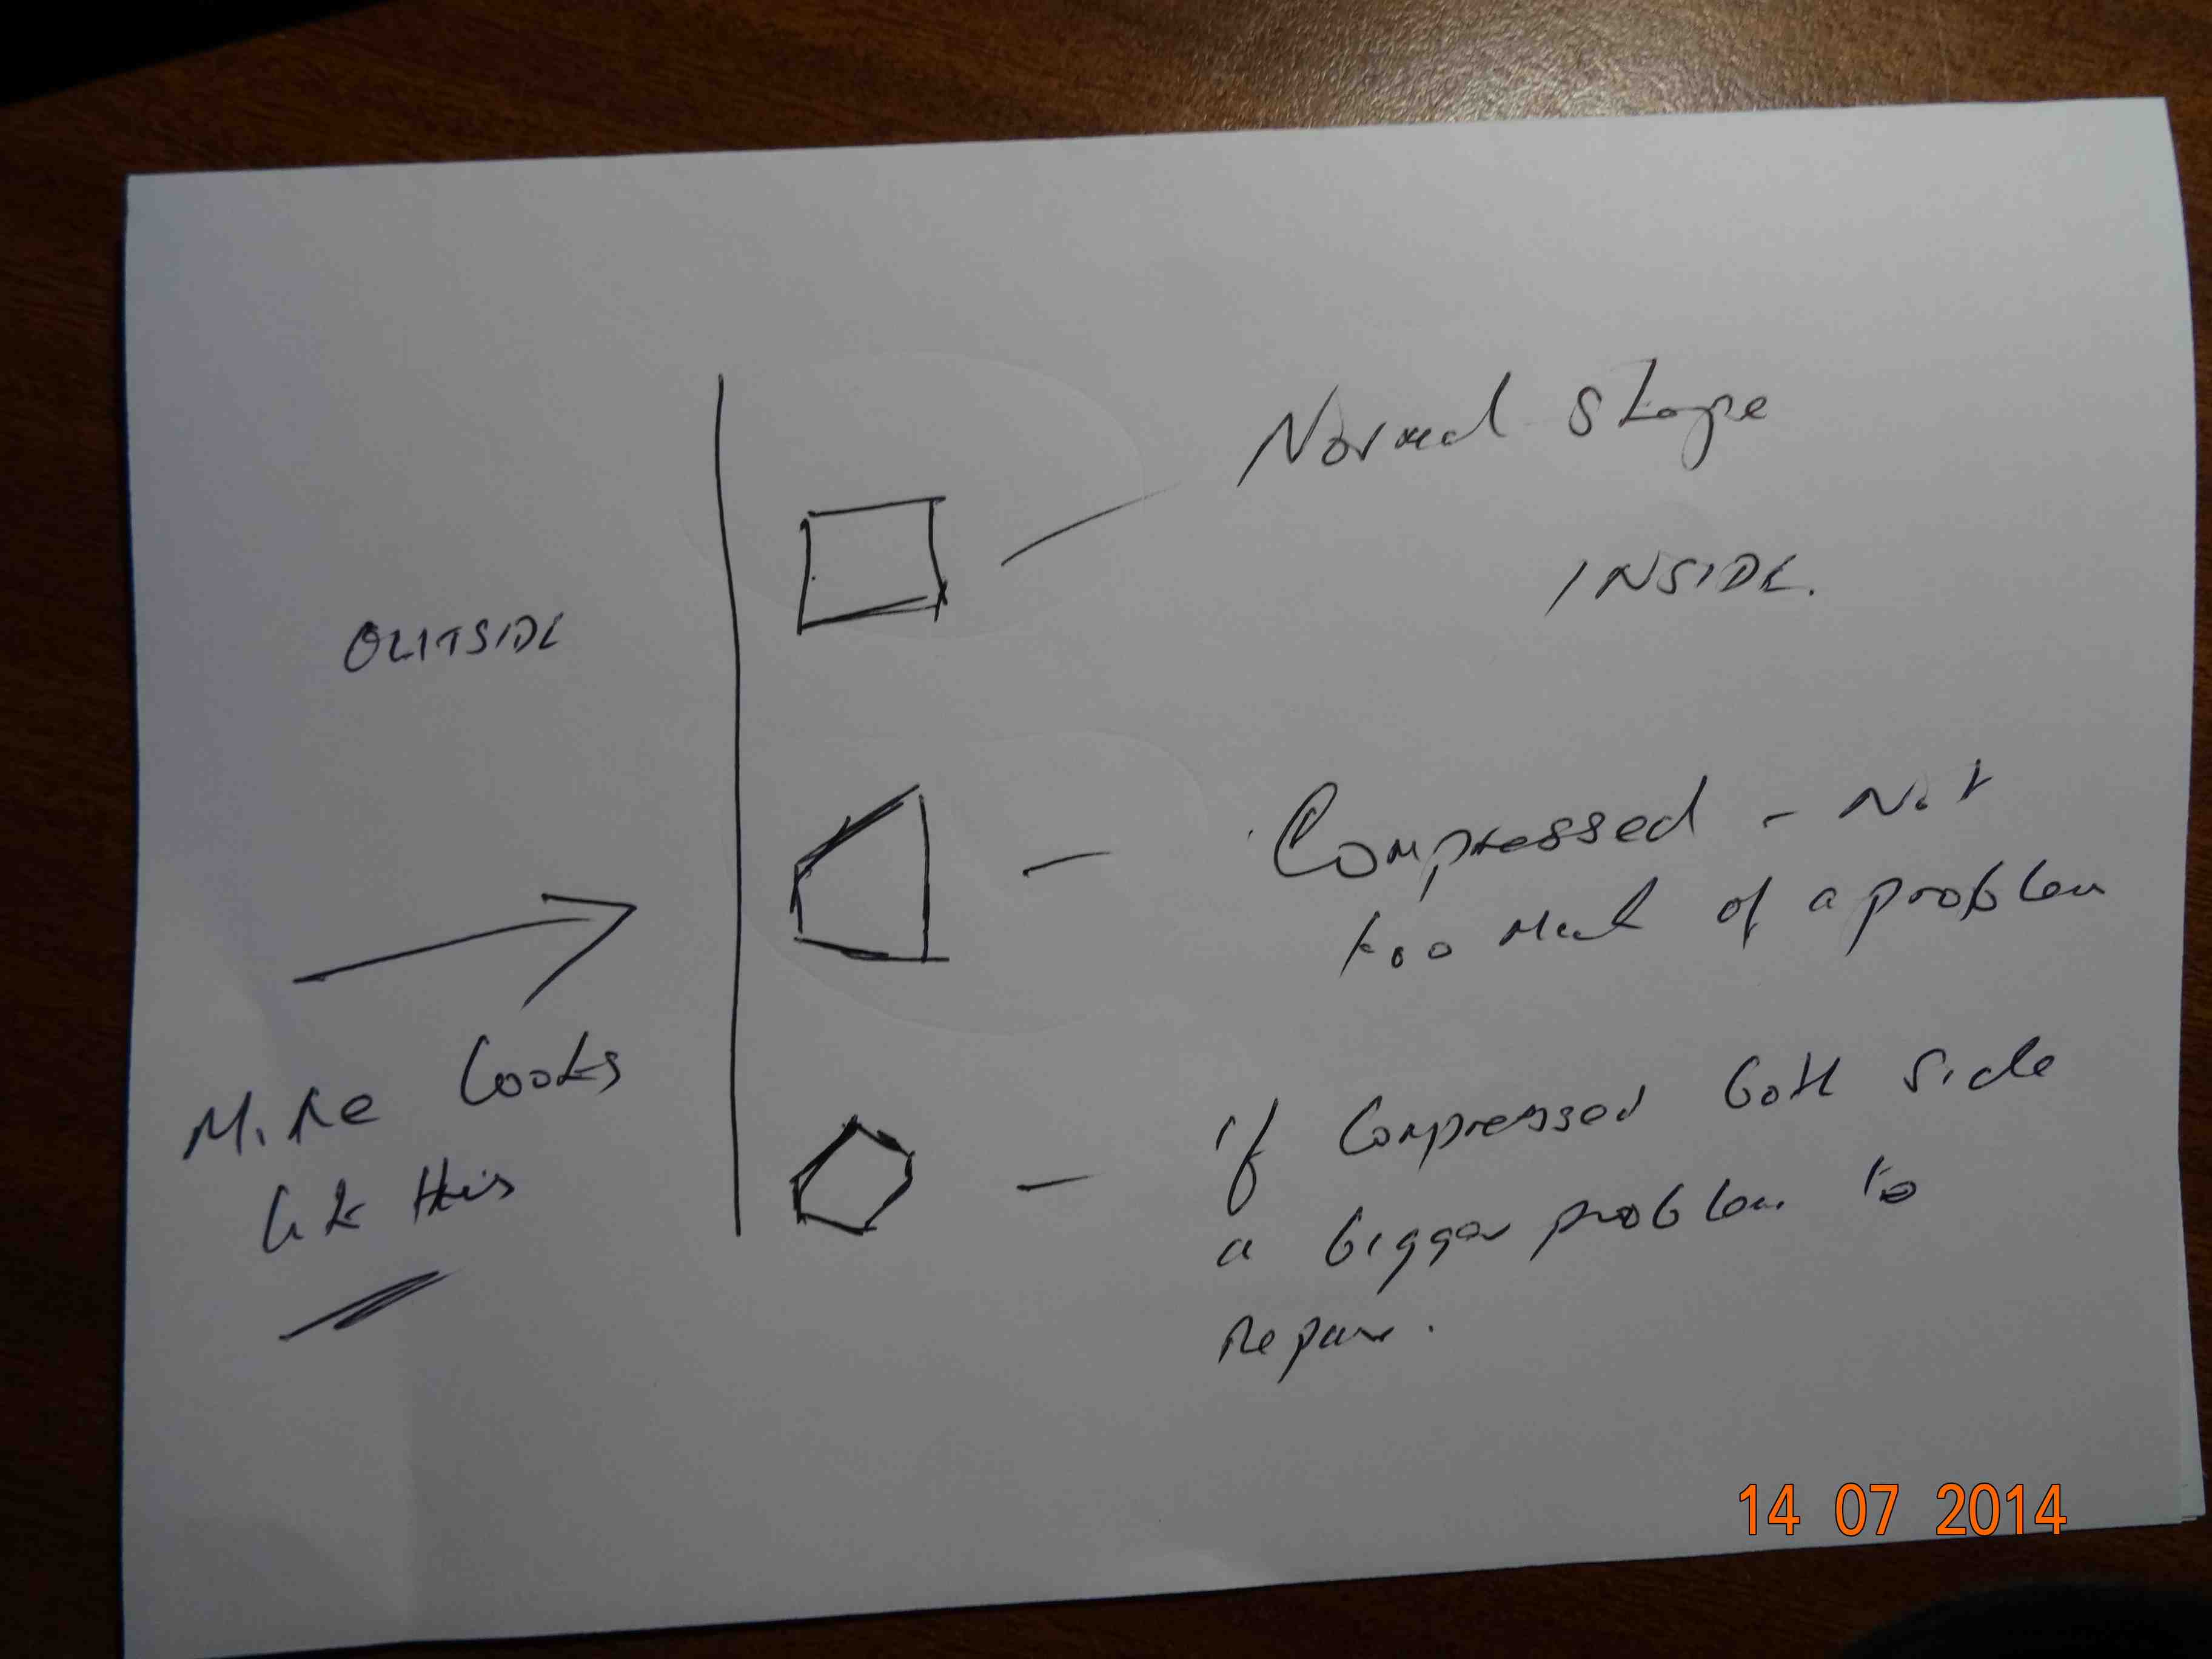 Normal Shape
INSIDE.
OUTSIDE
Compressed - Not
too Much of a problem
Mine Looks
Like this
if Compressed both side
a bigger problem to
repair.
14 07 2014